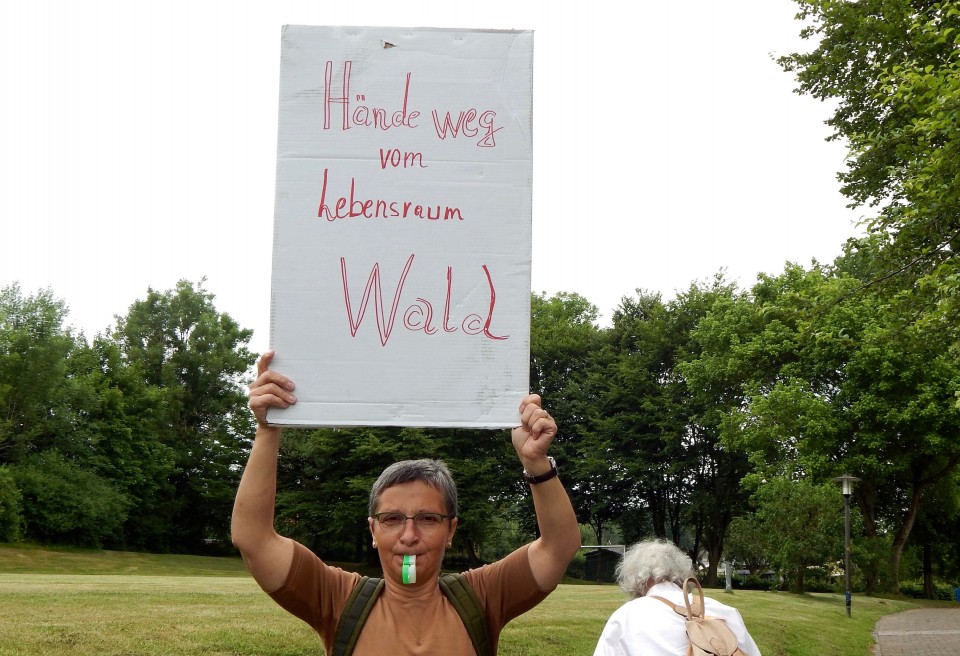 Hände weg
vom
Lebensraum
Wald